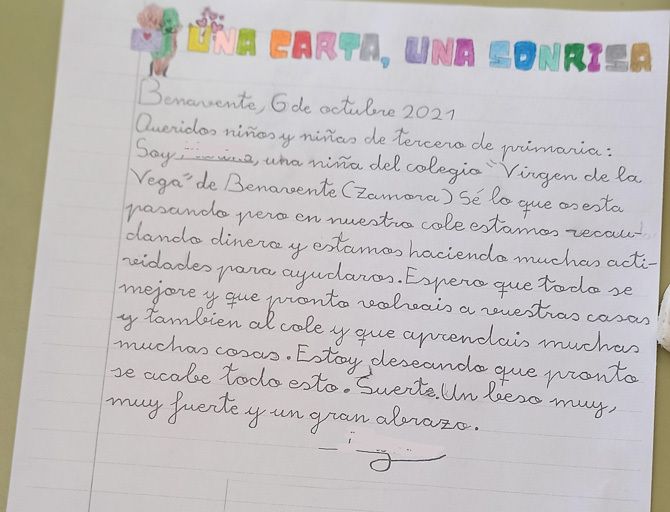 UNA CARTA, UNA SONRISA
Benavente, 6 de octubre 2021
Queridos niños y niñas de tercero de primaria:
Soy, una niña del colegio "Virgen de la
Vega" de Benavente (Zamora) Sé lo que os esta
pasando pero en nuestro cole estamos recau-
dando dinero y estamos haciendo muchas acti-
vidades para ayudaros. Espero que todo se
mejore y que pronto volvais a vuestras casas
y tambien al cole y que aprendais muchas
muchas cosas. Estoy deseando que pronto
se acabe todo esto. Suerte. Un beso muy,
muy fuerte y un gran abrazo.